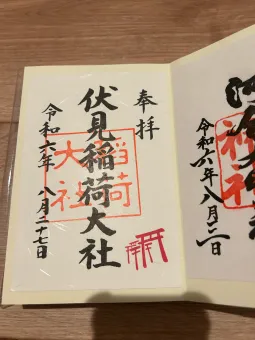 奉拝
伏見稲荷大社
令和六年 八月二十七日
稲荷
大社
令和六年八月